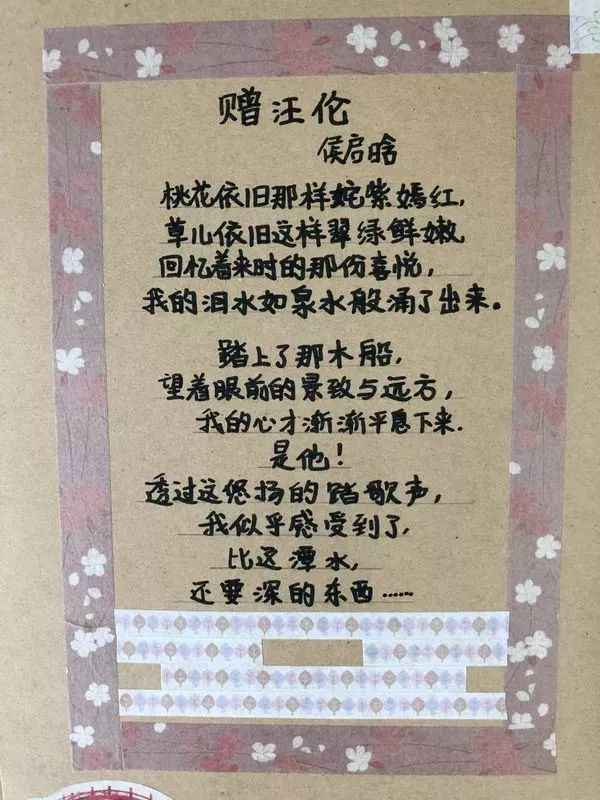 赠汪伦
侯启晗
桃花依旧那样姹紫嫣红,
草儿依旧这样翠绿鲜嫩,
回忆着来时的那份喜悦,
我的泪水如泉水般涌了出来。
踏上了那木船,
望着眼前的景致与远方,
我的心才渐渐平息下来.
是他!
透过这悠扬的踏歌声,
我似乎感受到了,
比这潭水,
还要深的东西……